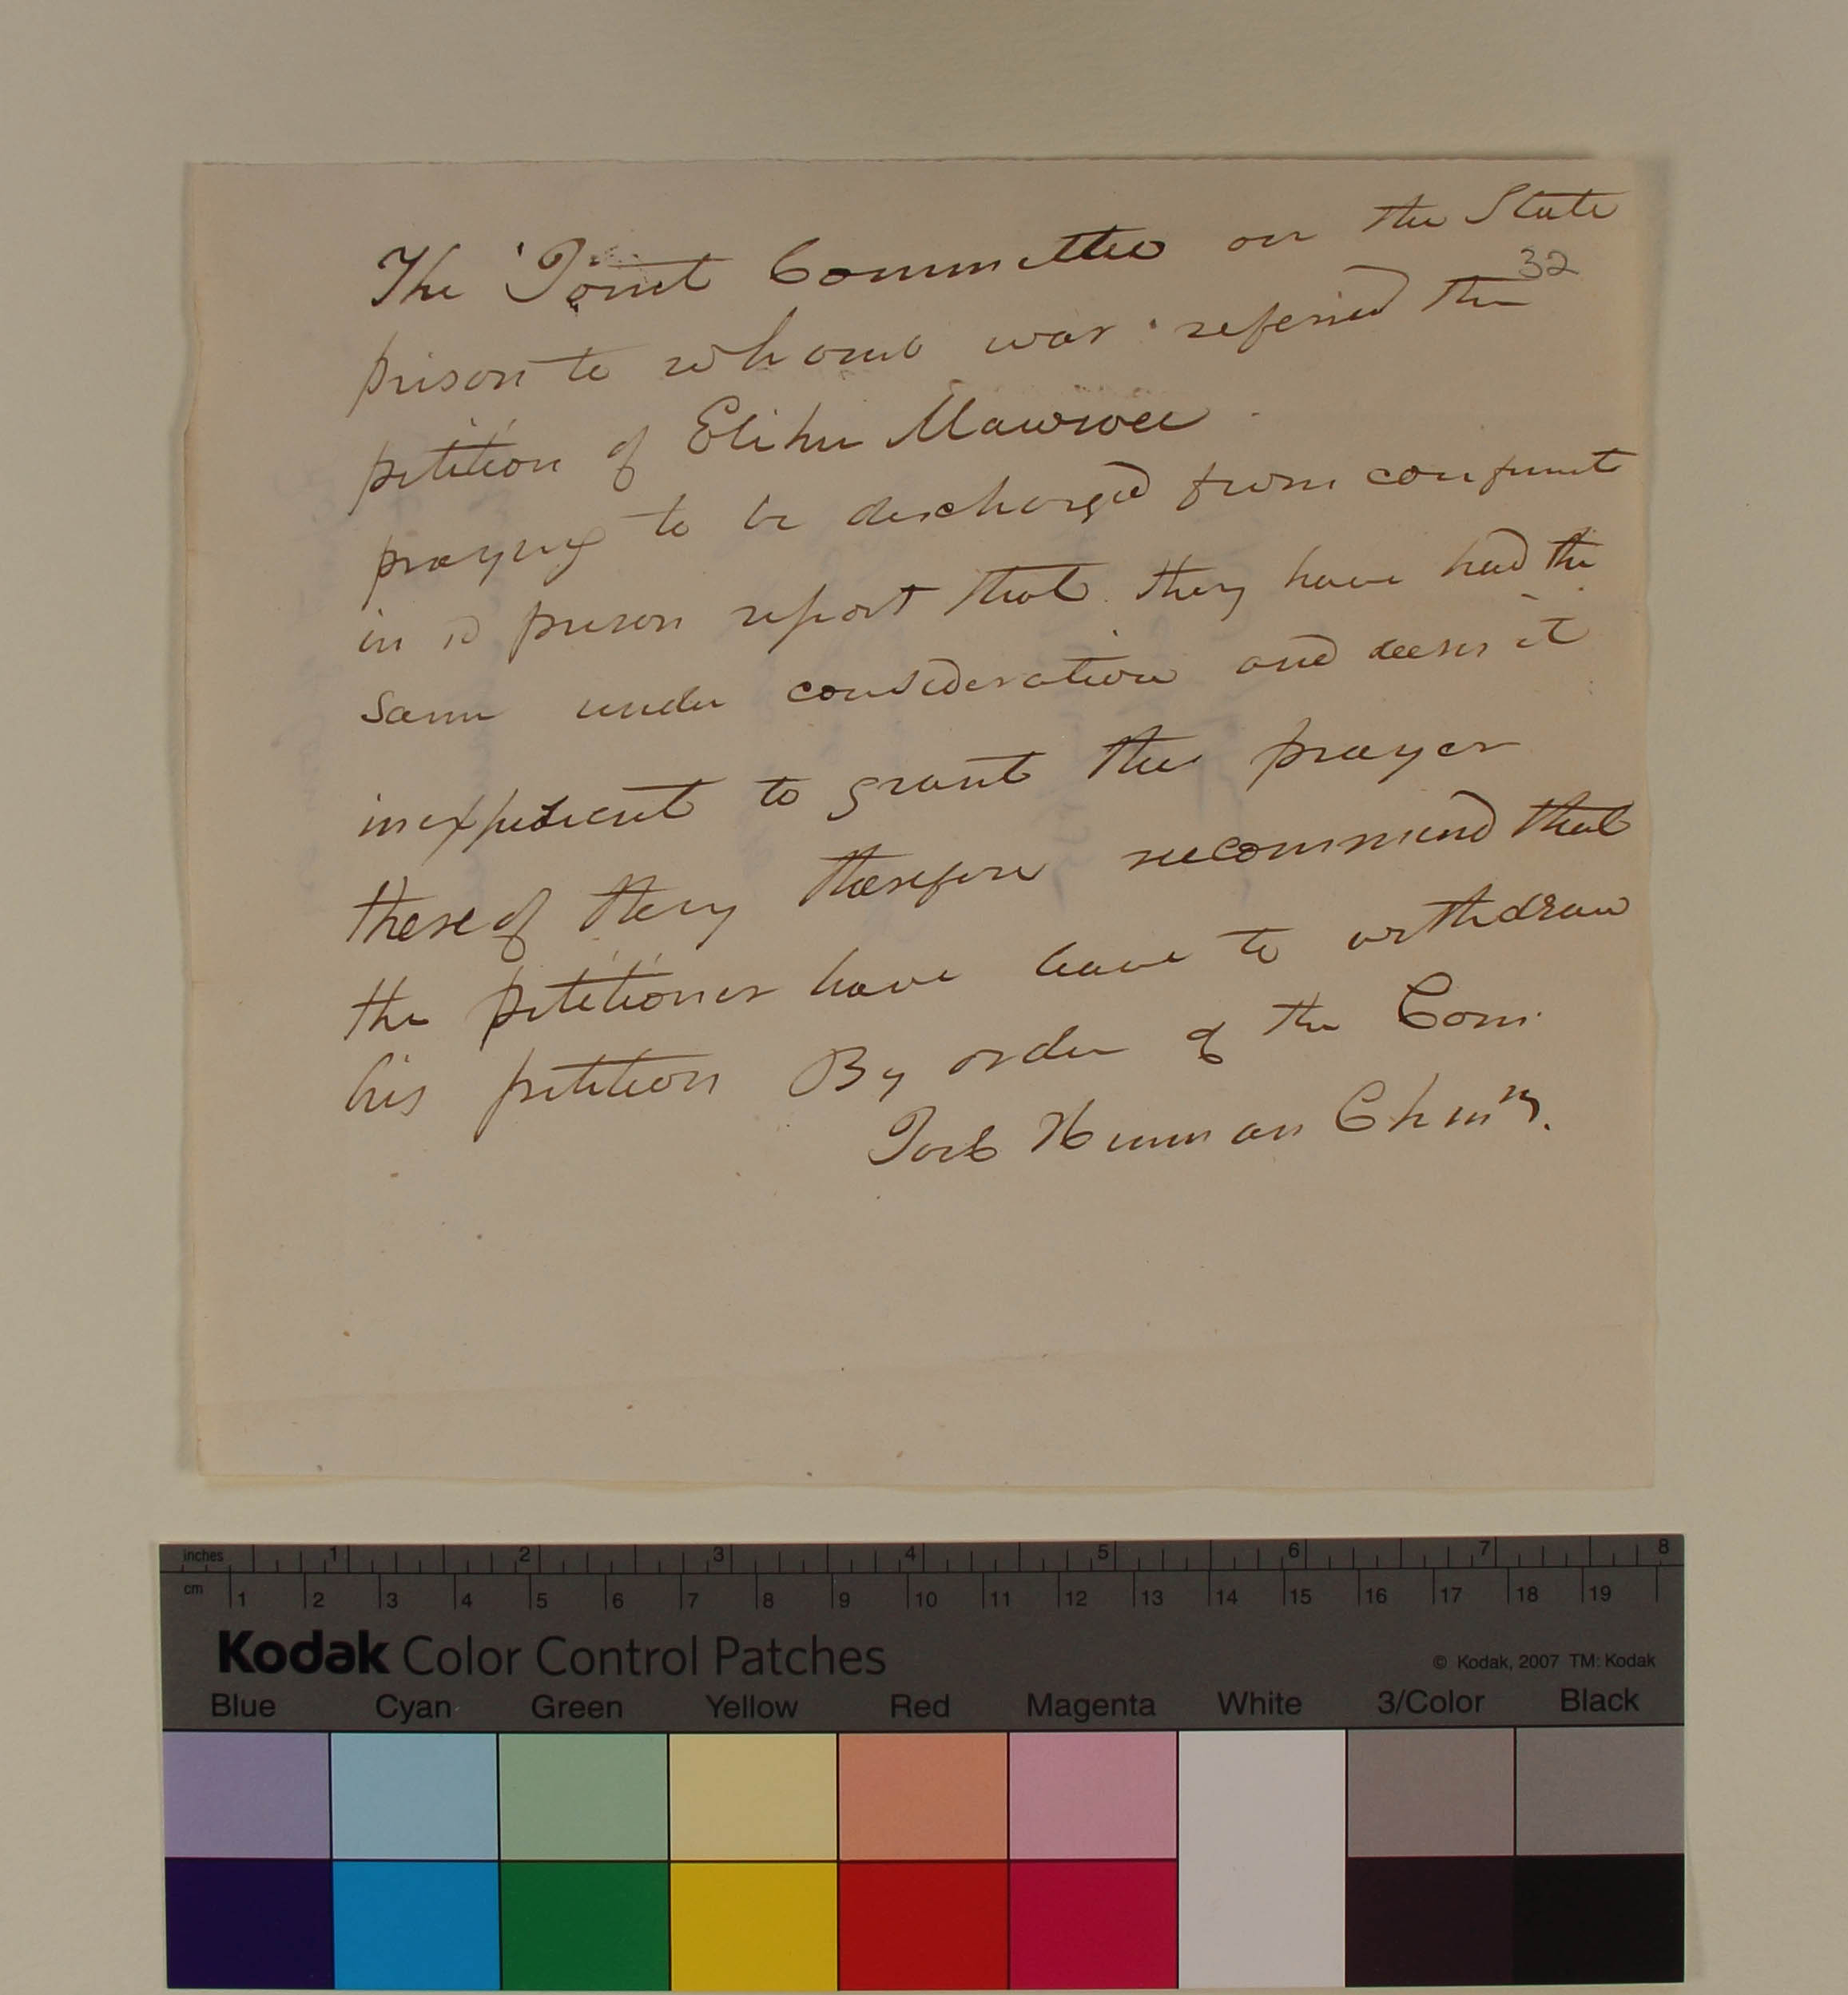 The Joint Committee on the State
32
prison to whome was referied the
petition of Elihu Mawwee
praying to be discharged from confinmt
in sd prison report that they have had the
same under consideration and deem it
inexpedient to grant the prayer
thereof they therefore recommend that
the petitioner have leave to withdraw
his petition By order of the Com.
Joel Hinman Chmn.
inches 1 2 3 4 5 6 7 8
cm 1 2 3 4 5 6 7 8 9 10 11 12 13 14 15 16 17 18 19
Kodak Color Control Patches
© Kodak, 2007 TM: Kodak
Blue Cyan Green Yellow Red Magenta White 3/Color Black